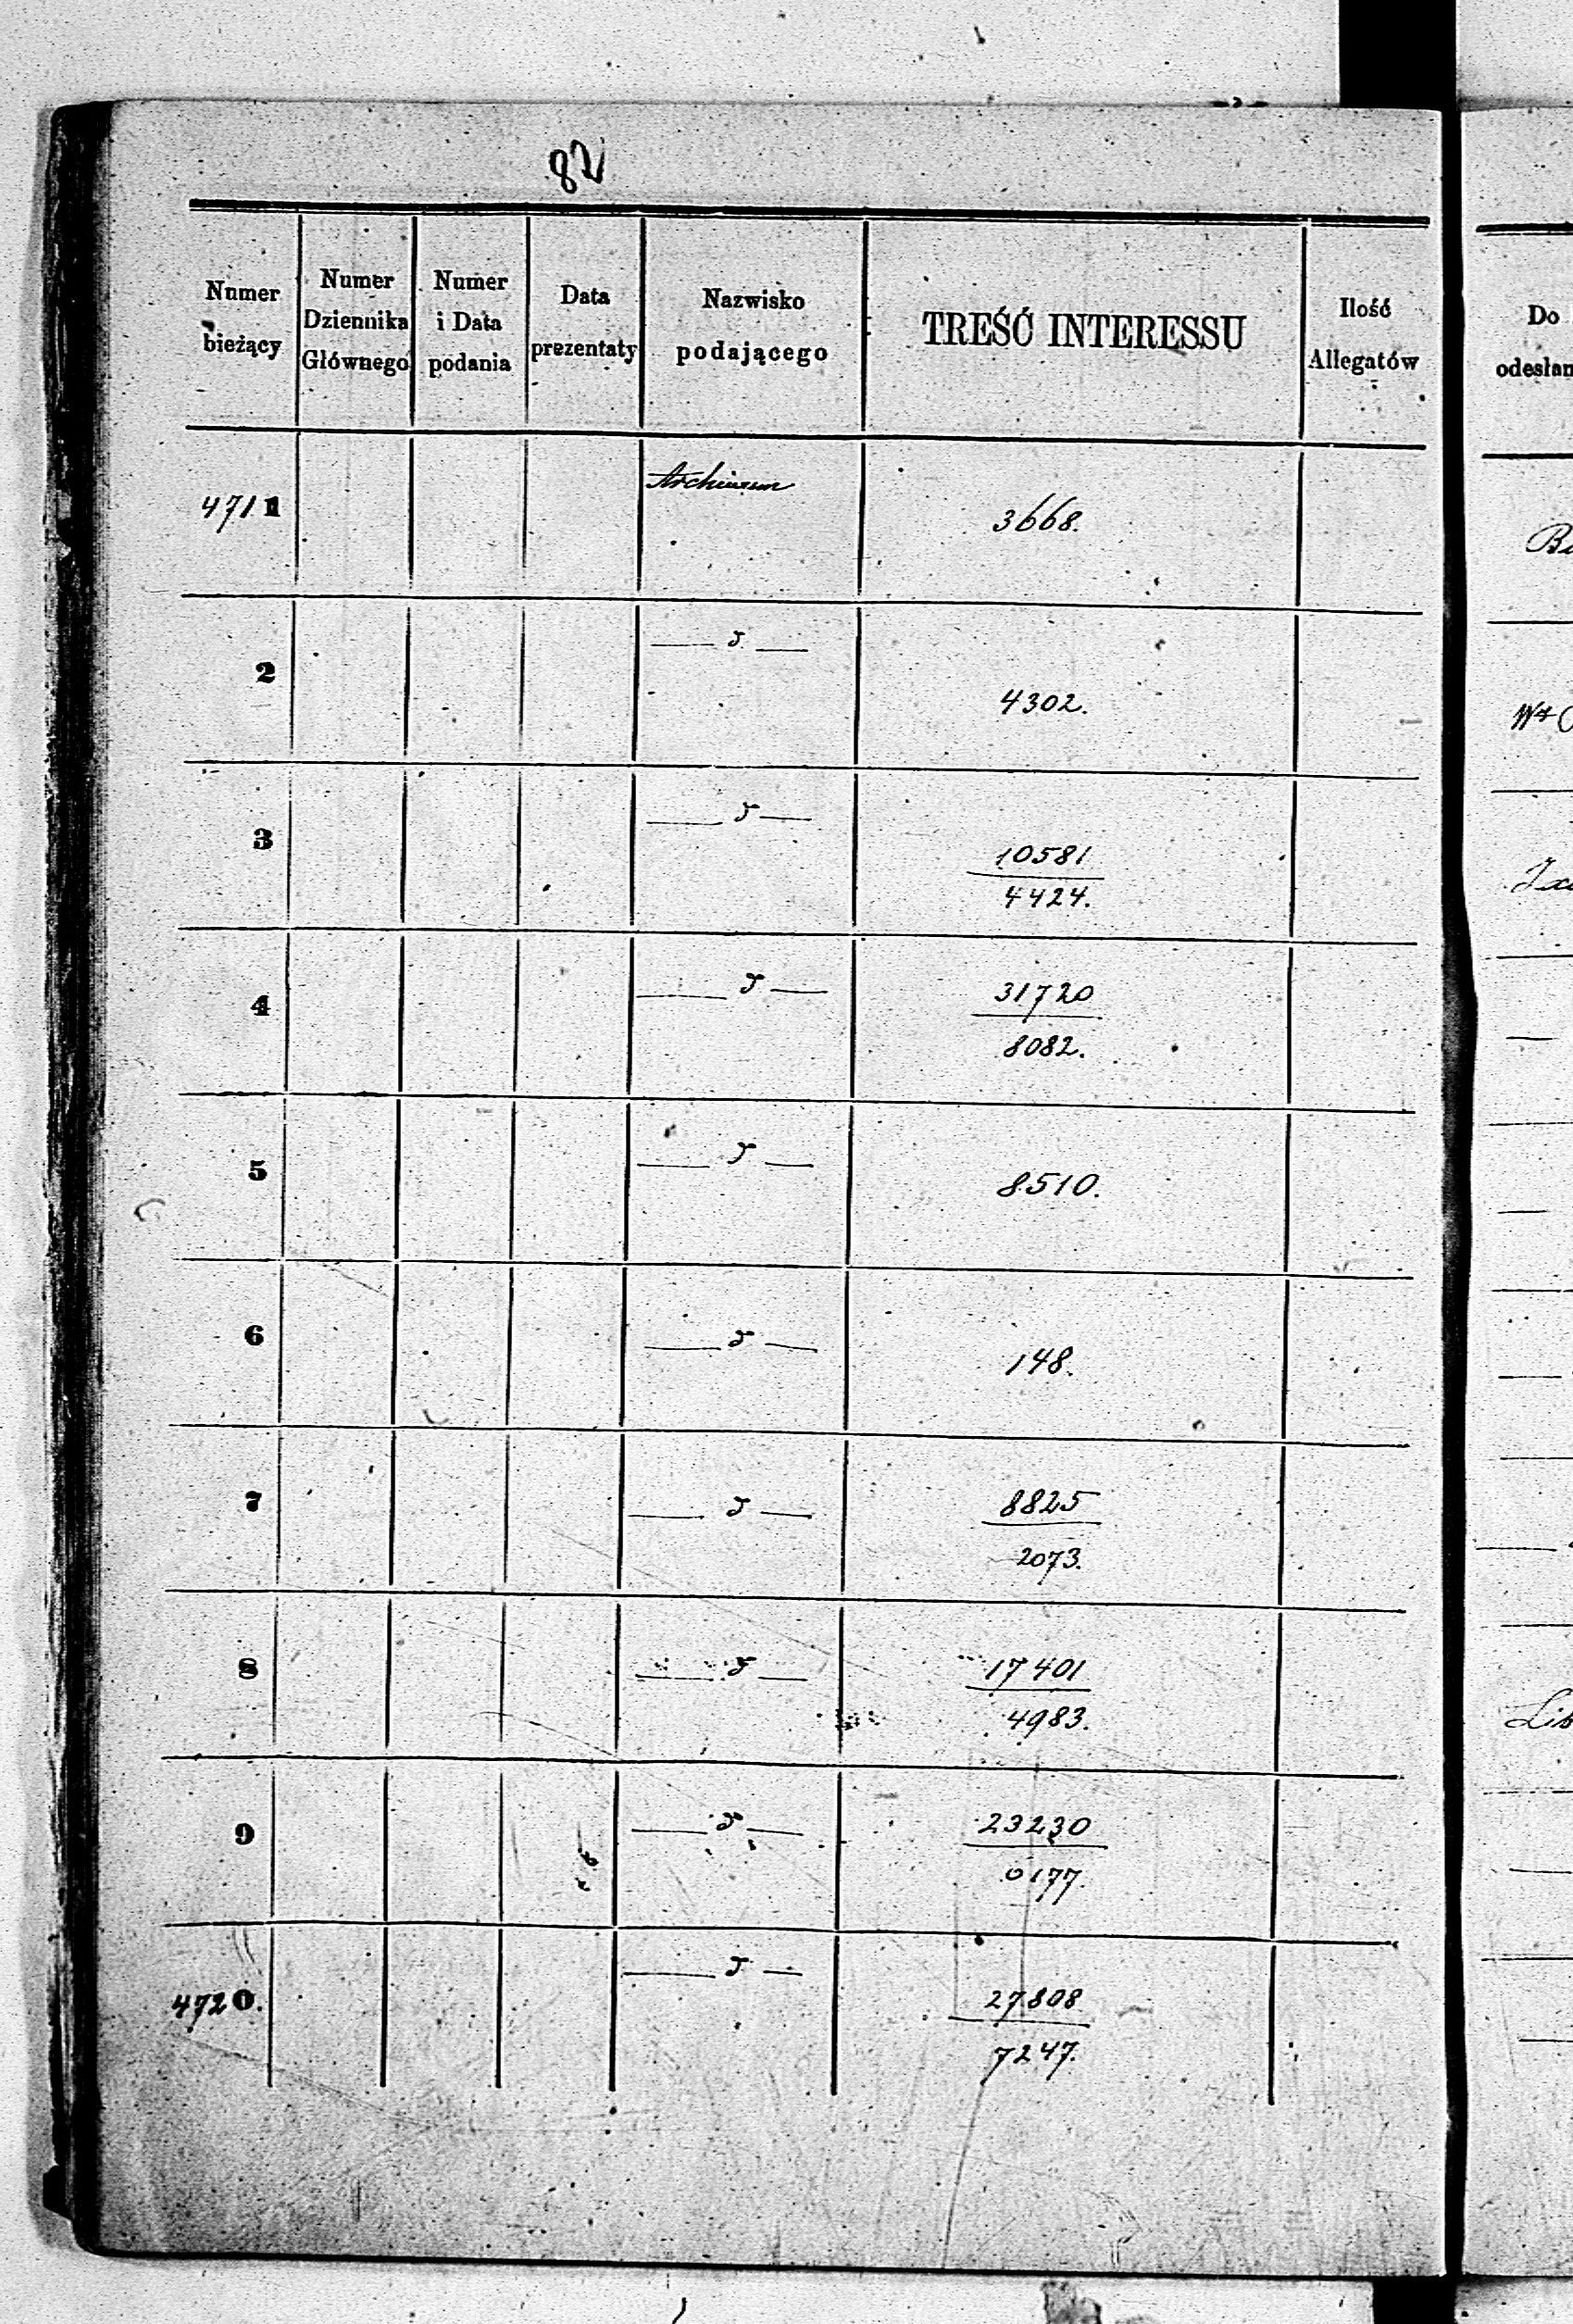 82
Numer bieżący
Numer Dziennika Głównego
Numer i Data podania
Data prezentaty
Nazwisko podającego
TREŚĆ INTERESSU
Ilość Allegatów
Do
odesłan
4711 Archiwum 3668.
2 4302.
W4
3
10581
4424.
4
31720
8082.
5 8510.
6 148.
7
8825
2073.
8
17401
4983.
Lib
9
23230
0177.
4720.
27808
7247.